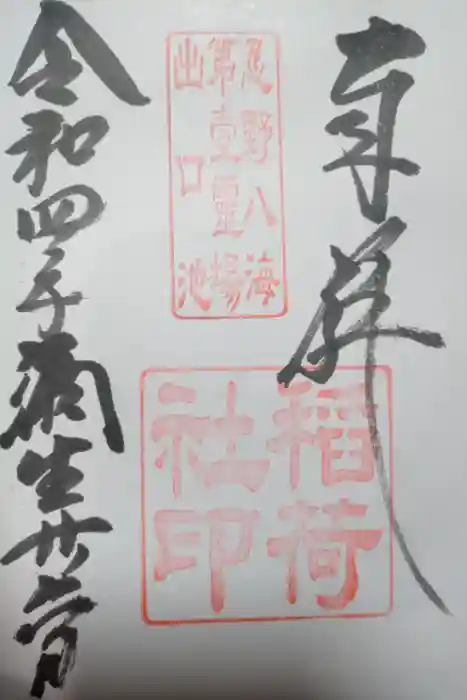 奉拝
忍野八海
第壱霊場
出口池
稲荷
社印
令和四年弥生廿六日